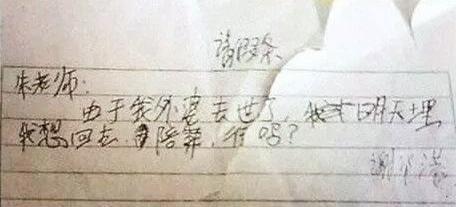 请假条
朱老师:
由于我外婆去世了,我才明天埋
我想回去 陪葬,行吗?
谢